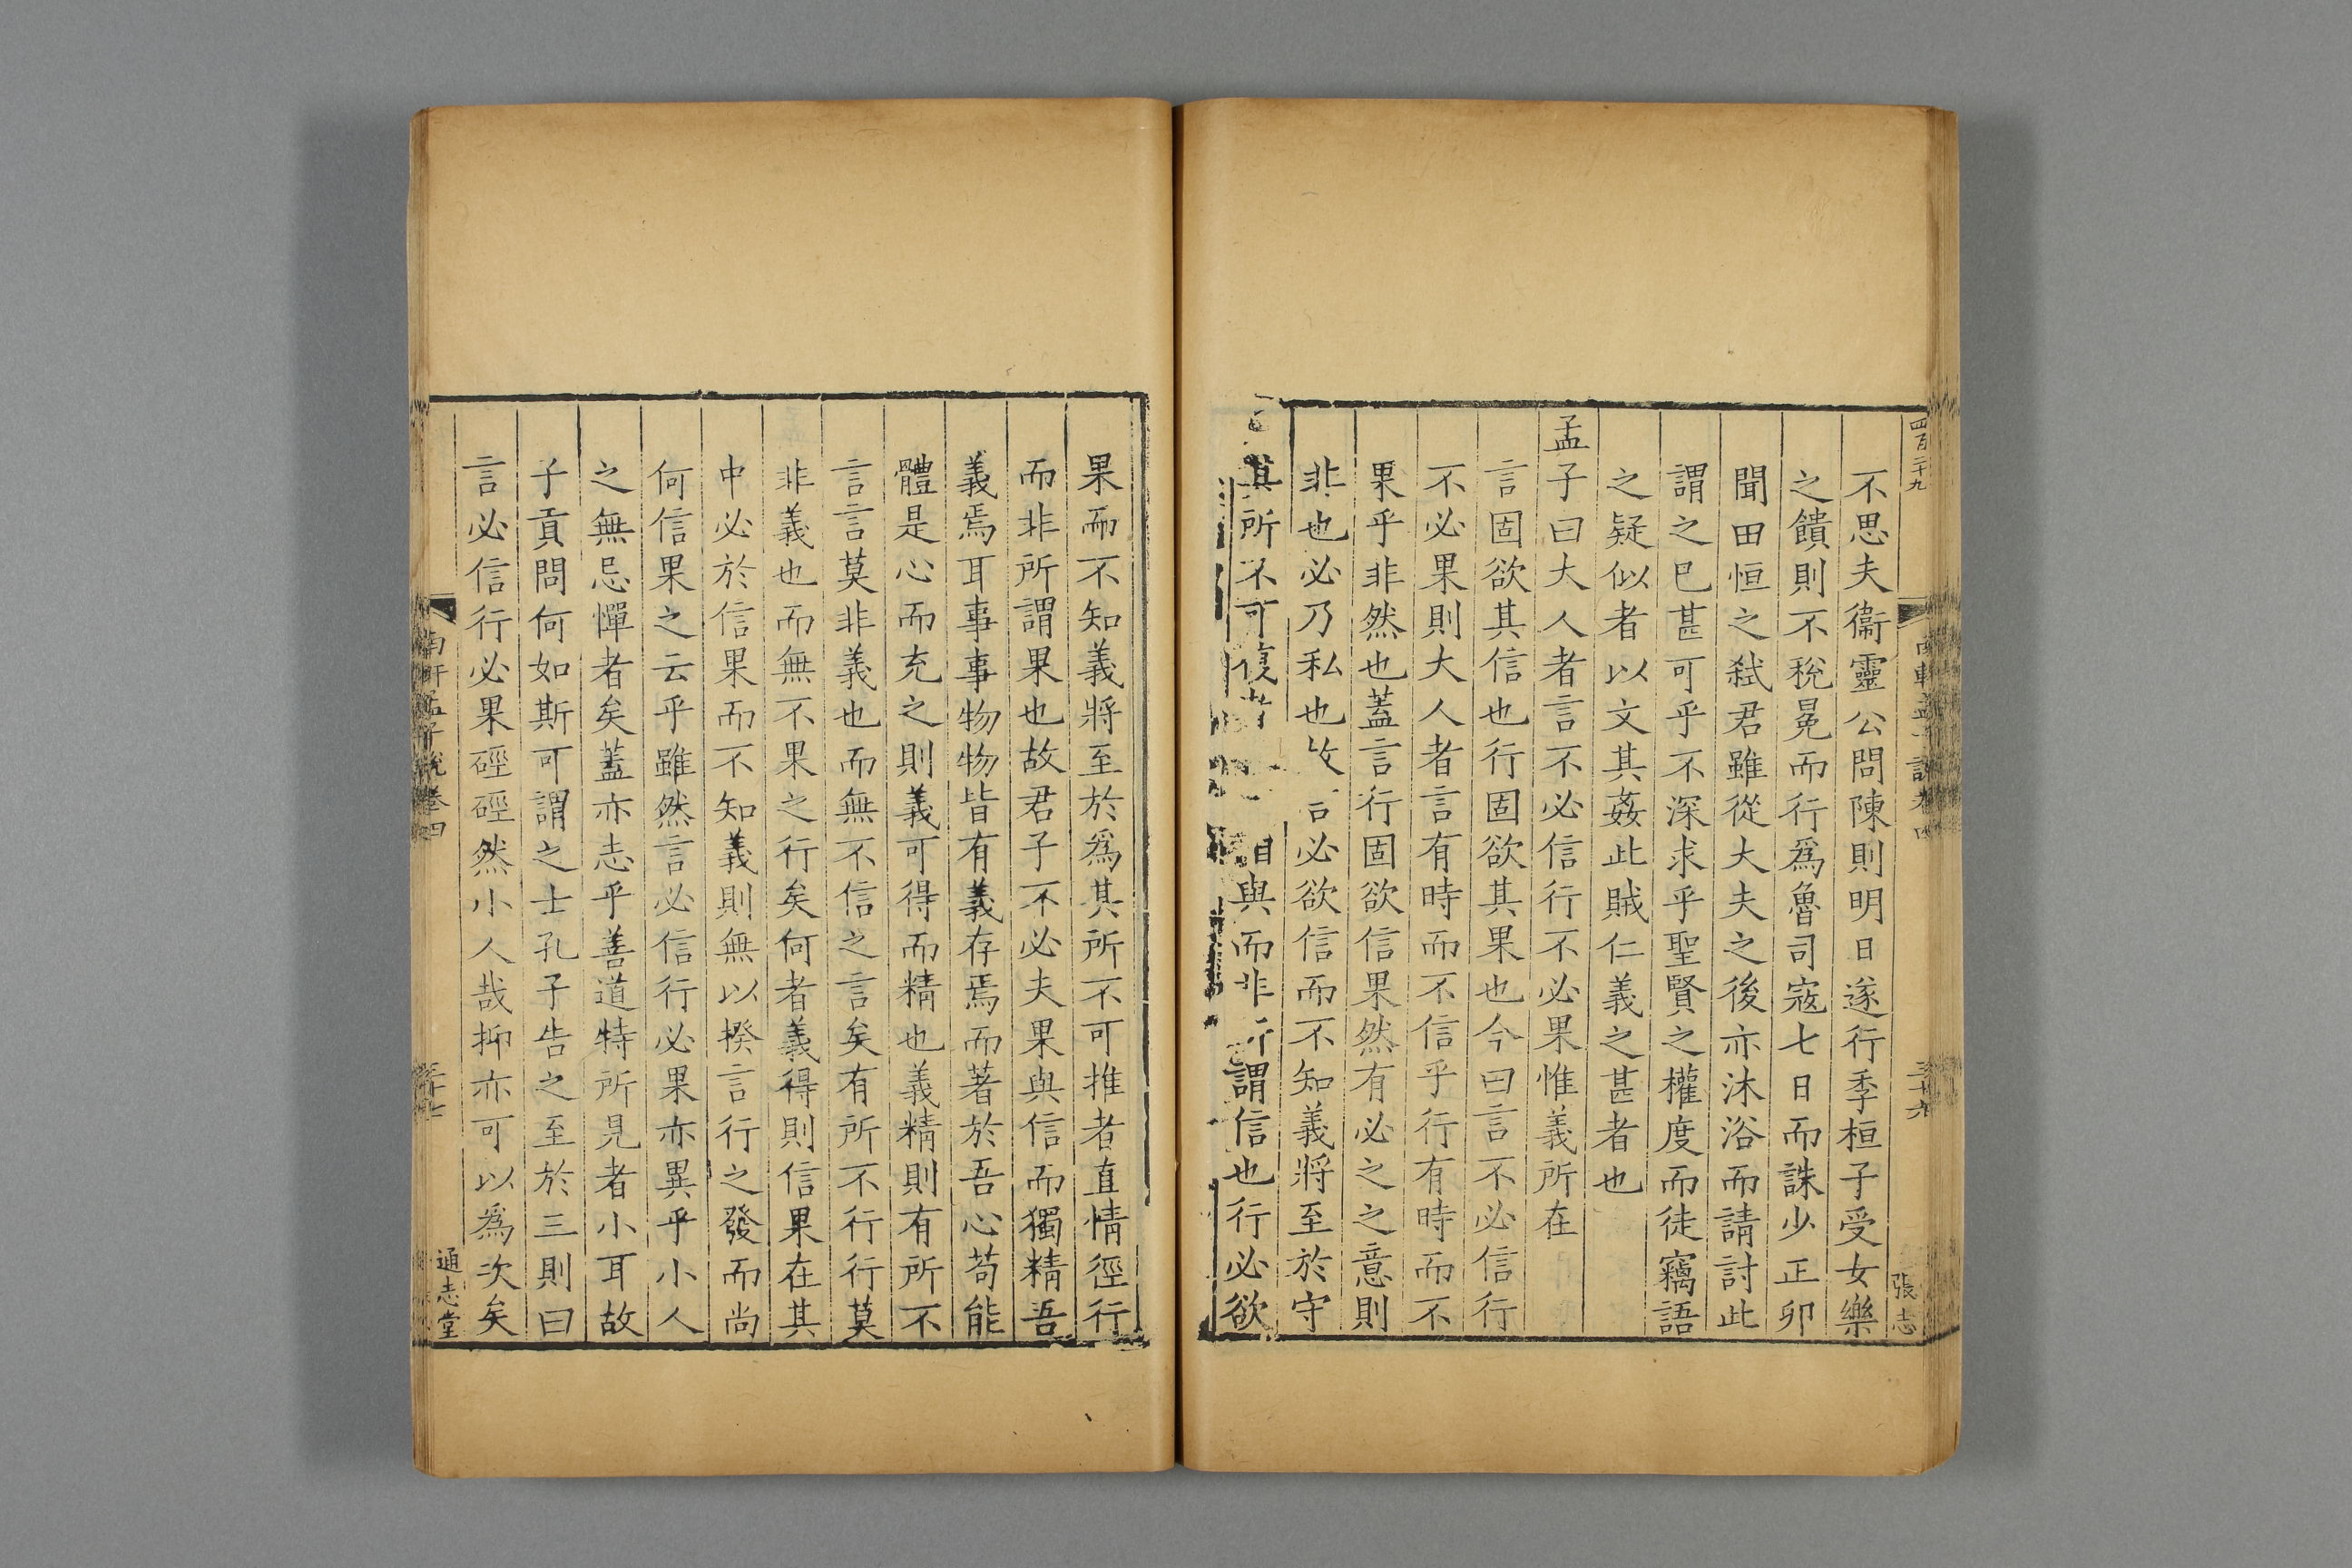 四百二十九
不思夫衞靈公問陳則明日遂行季桓子受女樂
之饋則不稅冕而行爲魯司寇七日而誅少正卯
聞田恒之弑君雖從大夫之後亦沐浴而請討此
謂之已甚可乎不深求乎聖賢之權度而徒竊語
之疑似者以文其姦此賊仁義之甚者也
孟子曰大人者言不必信行不必果惟義所在
言固欲其信也行固欲其果也今曰言不必信行
不必果則大人者言有時而不信乎行有時而不
果乎非然也蓋言行固欲信果然有必之之意則
非也必乃私也故言必欲信而不知義將至於守
其所不可復者 相與而非所謂信也行必欲
張志
果而不知義將至於爲其所不可推者直情徑行
而非所謂果也故君子不必夫果與信而獨精吾
義焉耳事事物物皆有義存焉而著於吾心苟能
體是心而充之則義可得而精也義精則有所不
言言莫非義也而無不信之言矣有所不行行莫
非義也而無不果之行矣何者義得則信果在其
中必於信果而不知義則無以揆言行之發而尚
何信果之云乎雖然言必信行必果亦異乎小人
之無忌憚者矣蓋亦志乎善道特所見者小耳故
子貢問何如斯可謂之士孔子告之至於三則曰
言必信行必果硜硜然小人哉抑亦可以爲次矣
南軒孟子說卷四
三十七
通志堂